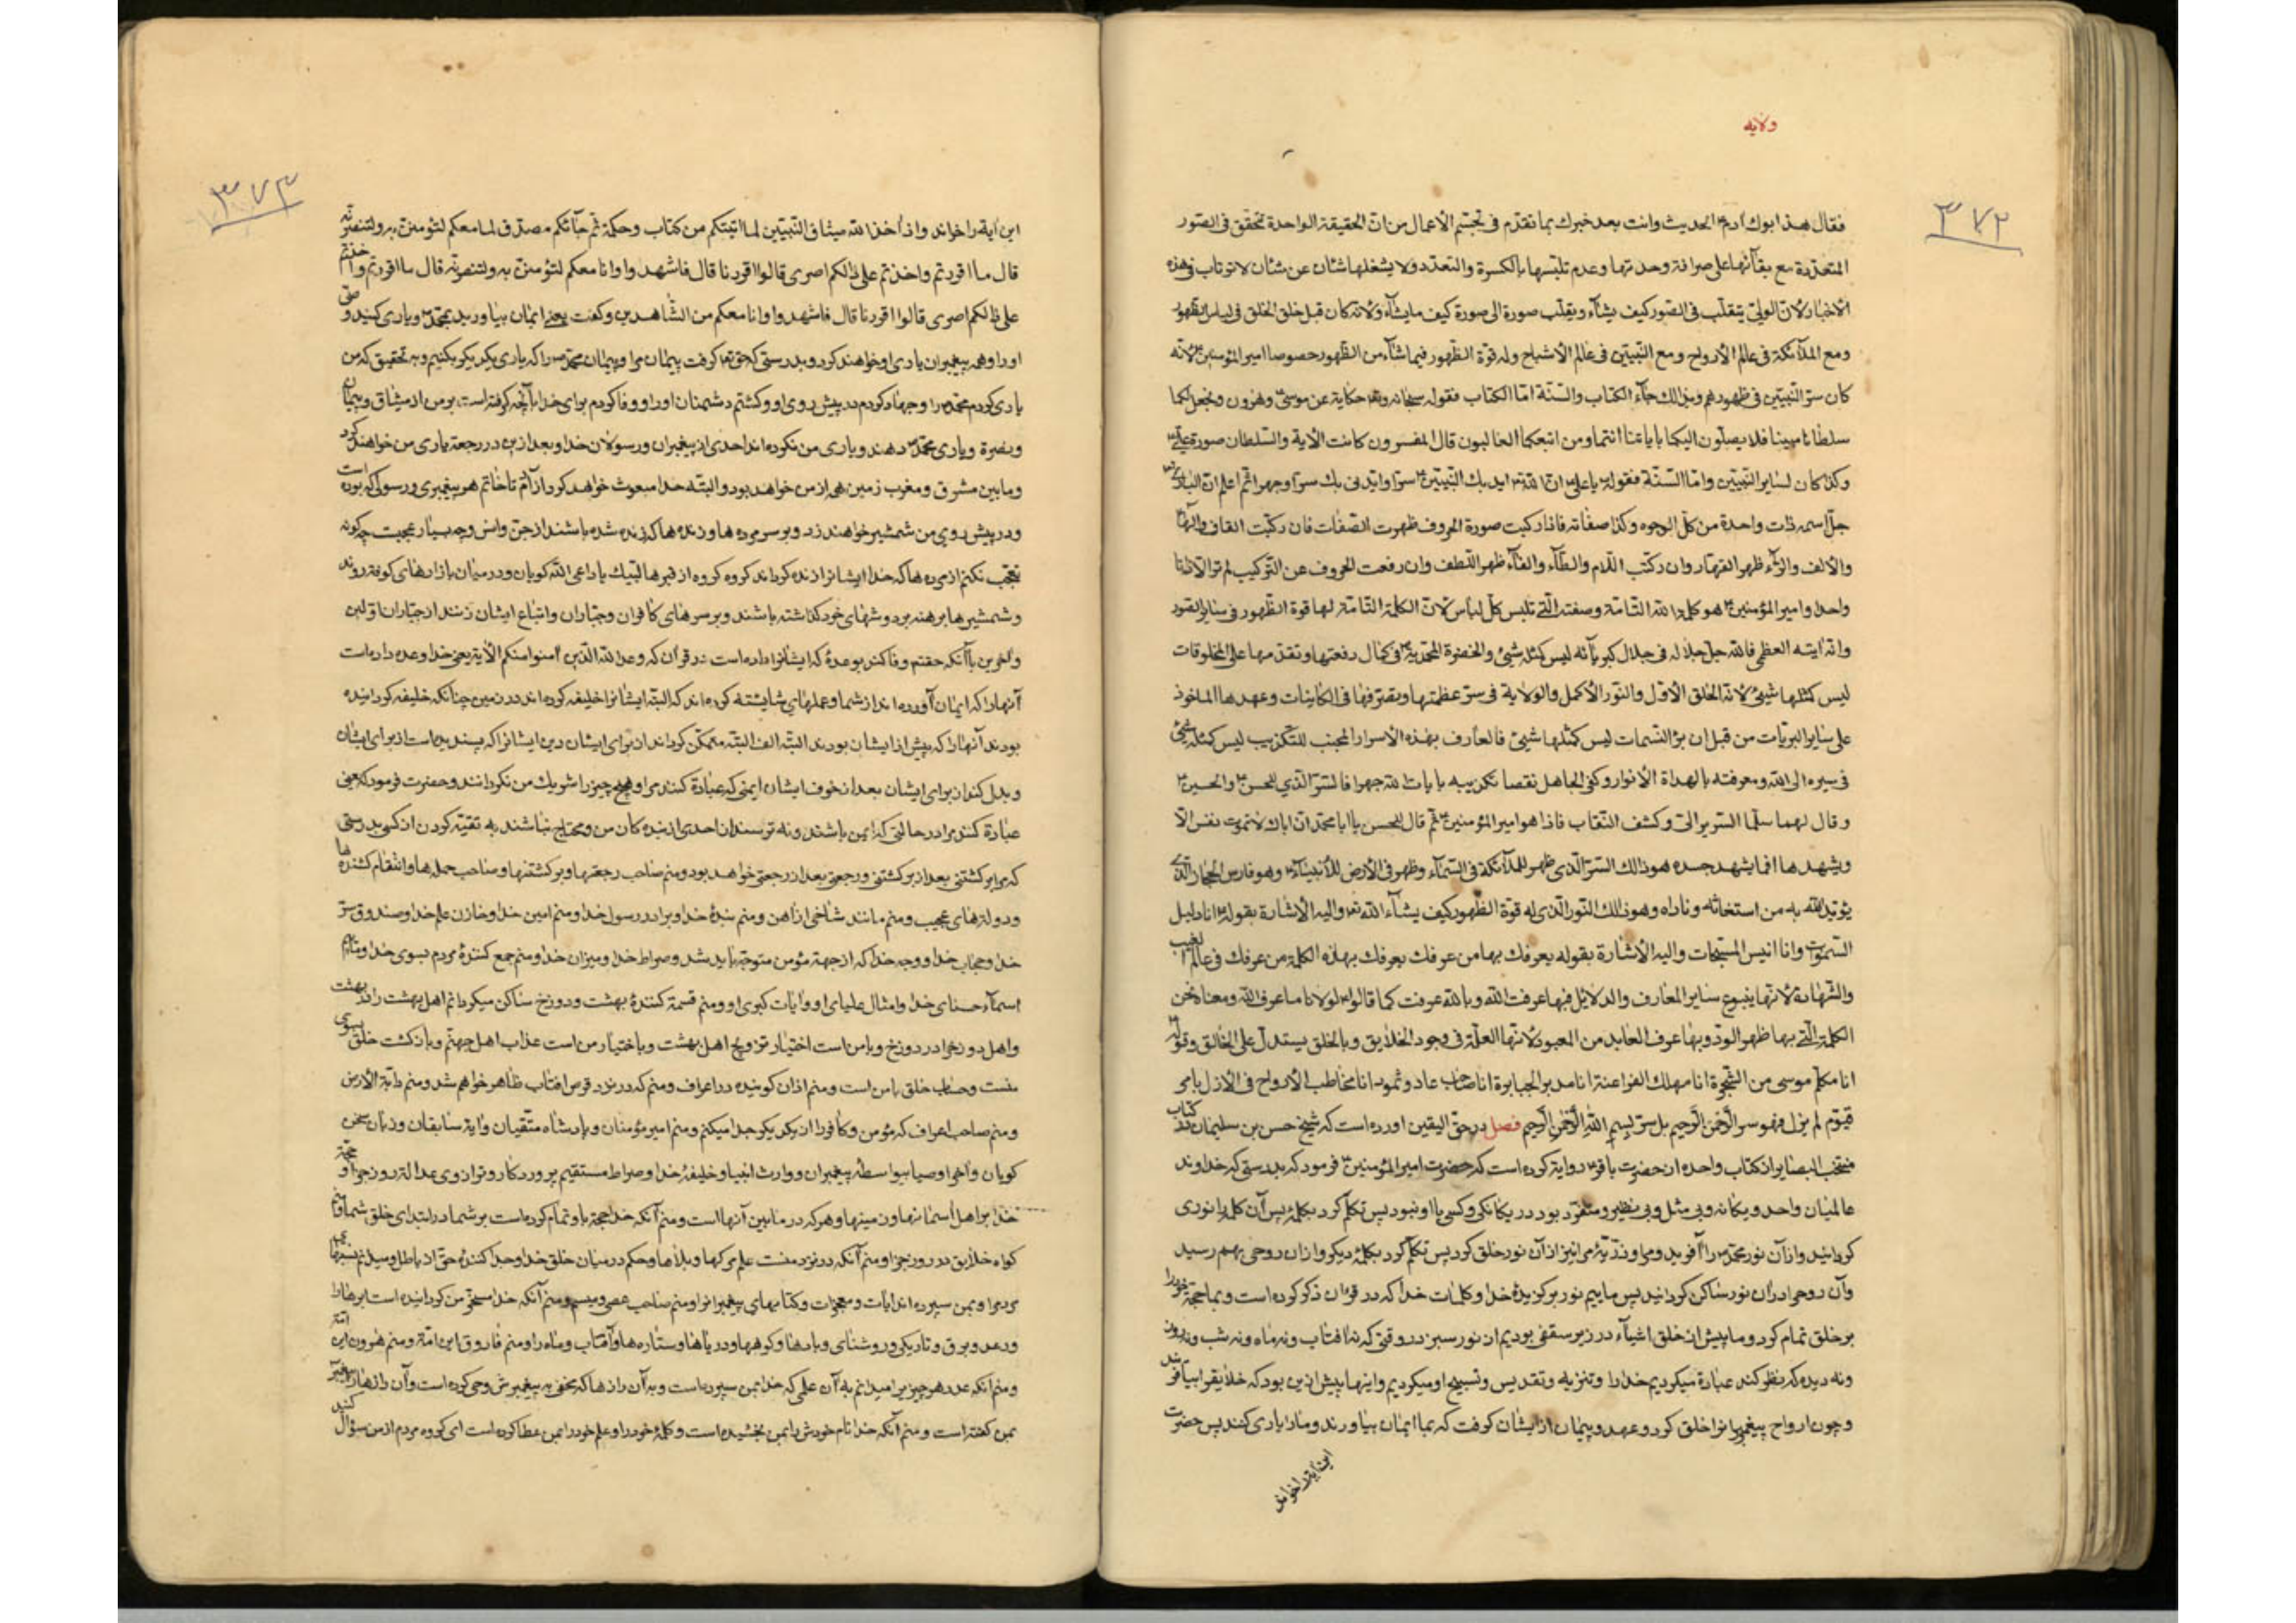 ولایه
۳۷۲
فقال هذا ابوك آدم الحدیث وانت بعد خبرك بما تقدّم فی تجسّم الأعمال من انّ الحقیقة الواحدة تحقّق فی الصّور
المتعدّدة مع بقآئها علی صرافة وحدتها وعدم تلبّسها بالکسرة والتعدّد ولا یشغلها شئان عن شئان لا ترتاب فی هذه
الأخبار لانّ الولیّ یتقلّب فی الصّور کیف یشآء ویقلّب صورة الی صورة کیف ما یشآء ولانّه کان قبل خلق الخلق فی لباس الظّهور
ومع الملآئکة فی عالم الأرواح ومع النّبیّین فی عالم الأشباح وله قوّة الظّهور فیما شآء من الظّهور خصوصا امیرالمؤمنین لانّه
کان سرّ النّبیّین فی ظهورهم وبذالك جآء الکتاب والسّنّة امّا الکتاب فقوله سبحانه وتع حکایة عن موسی وهرون ونجعل لکما
سلطانا مبینا فلا یصلون الیکما بایاتنا انتما ومن اتبعکما الغالبون قال المفسرون کانت الآیة والسّلطان صورة علی
وکذا کان لسایر النّبیّین وامّا السّنّة فقوله یا علی انّ الله اید بك النّبیّین سرّا وایّدنی بك سرّا وجهرا ثم اعلم انّ الباری
جلّ اسمه ذات واحدة من کلّ الوجوه وکذا صفاته فاذا رکبت صورة الحروف ظهرت الصّفات فان رکّبت القاف والهآء
والألف والرّآء ظهر القهّار وان رکّبت اللّام والطّآء والفآء ظهر اللّطف وان رفعت الحروف عن التّرکیب لم تر الّا ذاتا
واحدا وامیر المؤمنین هو کلمة الله التّامّة وصفته الّتی تلبس کلّ لباس لانّ الکلمة التّامّة لها قوة الظّهور فی سایر الصّور
وانّه ایته العظمی فالله جلّ جلاله فی جلال کبریآئه لیس کمثله شیئ والحضرة المحمّدیّة فی کمال رفعتها وتقدّمها علی المخلوقات
لیس کمثلها شیئ لانّه الخلق الأوّل والنّور الأکمل والولایة فی سرّ عظمتها وتصرّفها فی الکاینات وعهدها الماخوذ
علی سایر البریّات من قبل ان برأ النّسمات لیس کمثلها شیئ فالعارف بهذه الأسرار المجنب للتّکذیب لیس کمثله شیئ
فی سیره الی الله ومعرفته بالهداة الأنوار وکفی الجاهل نقصا تکذیبه بایات الله جهرا فالسّرّ الّذی للحسن والحسین
وقال لهما سلّما السّریر الیّ وکشف النّقاب فاذا هو امیر المؤمنین ثم قال للحسن یا ابا محمّد انّ اباك لا تموت نفس الّا
ویشهدها افما یشهد جسده هو ذالك السّرّ الّذی ظهر للملآئکة فی السّمآء وظهر فی الأرض للأنبیآء وهو فارس الحجاز الّذی
یؤیّد الله به من استغاثه وناداه وهو ذالك النّور الّذی له قوّة الظّهور کیف یشآء الله تع والیه الأشارة بقوله انا دلیل
السّموات وانا انیس المسبّحات والیه الأشارة بقوله یعرفك بها من عرفك یعرفك بهذه الکلمة من عرفك فی عالم الغیب
والشّهادة لانّها ینبوع سایر المعارف والدلایل فبها عرفت الله وبالله عرفت کما قالوا لولانا ما عرف الله ومعناه نحن
الکلمة الّتی بها ظهر الوجود وبها عرف العابد من المعبود لانّها العلّة فی وجود الخلایق وبالخلق یستدلّ علی الخالق وقوله
انا مکلّم موسی من الشّجرة انا مهلك الفراعنة انا مدبر الجبابرة انا صاحب عاد وثمود انا مخاطب الأرواح فی الأزل بامر
قیّوم لم یزل فهو سر الرّحمن الرّحیم بل سرّ بسم الله الرّحمن الرّحیم فصل در حقّ الیقین آورده است که شیخ حسن بن سلیمان در کتاب
منتخب البصایر از کتاب واحده از حضرت باقر روایة کرده است که حضرت امیرالمؤمنین فرمود که بدرستی که خداوند
عالمیان واحد ویکانه وبی مثل وبی نظیر ومتفرّد بود در یکانکی وکسی با او نبود پس تکلّم کرد بکلمهٔ پس آن کلمه را نوری
کردانید واز آن نور محمّد را آفرید ومرا وذرّیّهٔ مرا نیز از آن نور خلق کرد پس تکلّم کرد بکلمهٔ دیکر واز ان روحی بهم رسید
وآن روح را در ان نور ساکن کردانید پس ماییم نور برکزیدهٔ خدا وکلمات خدا که در قران ذکر کرده است وبما حجّة خود را
بر خلق تمام کرد وما پیش از خلق اشیآء در زیر سقفی بودیم از نور سبز در وقتی که نه افتاب ونه ماه ونه شب ونه روز
ونه دیده که نظر کند عبادة میکردیم خدا را وتنزیه وتقدیس وتسبیح او میکردیم واینها پیش ازین بود که خلایق را بیافریند
وچون ارواح پیغمبرانرا خلق کرد وعهد وپیمان از ایشان کرفت که بما ایمان بیاورند ومارا یاری کنند پس حضرت
این آیة را خواند
۳۷۳
این آیة را خواند واذ أخذ الله میثاق النّبیّین لما اتیتکم من کتاب وحکمة ثم جآئکم مصدّق لما معکم لتؤمننّ به ولتنصرنّه
قال ءاقررتم واخذتم علی ذالکم اصری قالوا اقررنا قال فاشهدوا وانا معکم لتؤمننّ به ولتنصرنّه قال ءاقررتم واخذتم
علی ذالکم اصری قالوا اقررنا قال فاشهدوا وانا معکم من الشّاهدین وکفت یعنی ایمان بیاورید بمحمّد ویاری کنید وصیّ
اورا وهمه پیغمبران یاری او خواهند کرد وبدرستی که حق تع کرفت پیمان مرا وپیمان محمّد را که یاری یکدیکر بکنیم وبه تحقیق که من
یاری کردم محمّد را وجهاد کردم در پیش روی او وکشتم دشمنان اورا ووفا کردم برای خدا بآنچه کرفته است بر من از میثاق وپیمان
ونصرة ویاری محمّد دهند ویاری من نکرده اند احدی از پیغمبران ورسولان خدا وبعد ازین در رجعة یاری من خواهند کرد
ومابین مشرق ومغرب زمین همه از من خواهد بود والبتّه خدا مبعوث خواهد کرد از آدم تا خاتم هر پیغمبری ورسولی که بوده است
ودر پیش روی من شمشیر خواهند زد وبر سر مرده ها وزنده ها که زنده شده باشند از جن وانس وچه بسیار عجبست چه کونه
تعجّب نکنم از مرده ها که خدا ایشانرا زنده کرداند کروه کروه از قبرها لبّیك یا داعی الله کویان ودر میان بازارهای کوفه روند
وشمشیرها برهنه بر دوشهای خود کذاشته باشند وبر سرهای کافران وجبّاران واتباع ایشان زنند از جبّاران اوّلین
وآخرین با آنکه حقتع وفا کند بوعدهٔ که ایشانرا داده است در قرآن که وعد الله الّذین آمنوا منکم الأیة یعنی خدا وعده داده است
آنهارا که ایمان آورده اند از شما وعملهای شایسته کرده اند که البتّه ایشانرا خلیفه کرده اند در زمین چنانکه خلیفه کردانیده
بودند آنهارا که پیش از ایشان بودند البتّه الف البتّه متمکّن کرداند از برای ایشان دین ایشانرا که پسندیده است از برای ایشان
وبدل کند از برای ایشان بعد از خوف ایشان ایمنی که عبادة کنند مرا وهیچ چیز را شریك من نکردانند وحضرت فرمود که یعنی
عبادة کنند مرا در حالتی که ایمن باشند ونه ترسند از احدی از بنده کان من ومحتاج نباشند به تقیّه کردن از کسی بدرستی
که مرا برکشتنی بعد از برکشتنی ورجعتی بعد از رجعتی خواهد بود ومنم صاحب رجعتها وبرکشتنها وصاحب حمله ها وانتقام کشنده ها
ودولتهای عجیب ومنم مانند شاخی از آهن ومنم بندهٔ خدا وبرادر رسول خدا ومنم امین خدا وخازن علم خدا وصندوق سرّ
خدا وحجاب خدا ووجه خدا که از جهة مؤمن متوجّه باید شد وصراط خدا ومیزان خدا ومنم جمع کنندهٔ مردم بسوی خدا ومنم
اسمآء حسنای خدا وامثال علیای او وایات کبری او ومنم قسمة کنندهٔ بهشت ودوزخ ساکن میکردانم اهل بهشت را در بهشت
واهل دوزخرا در دوزخ وبا من است اختیار تزویج اهل بهشت وباختیار من است عذاب اهل جهنّم وبازکشت خلق بسوی
منست وحساب خلق با من است ومنم اذان کوینده در اعراف ومنم که در نزد قرص افتاب ظاهر خواهم شد ومنم دابّة الأرض
ومنم صاحب اعراف که مؤمن وکافر را از یکدیکر جدا میکنم ومنم امیر مؤمنان وپادشاه متّقیان وایة سابقان وزبان سخن
کویان وآخر اوصیا بواسطهٔ پیغمبران ووارث انبیا وخلیفهٔ خدا وصراط مستقیم پروردکار وترازوی عدالة روز جزا وحجّة
خدا بر اهل اسمانها وزمینها وهر که در مابین آنها است ومنم آنکه خدا حجّة باو تمام کرده است بر شما در ابتدای خلق شما ومنم
کواه خلایق در روز جزا ومنم آنکه در نزد منست علم مرکها وبلاها وحکم در میان خلق خدا وجدا کنندهٔ حق از باطل ومیدانم نسبهای
مردمرا وبمن سپرده اند ایات ومعجزات وکتابهای پیغمبرانرا ومنم صاحب عصا ومیسم ومنم آنکه خدا مسخّر من کردانیده است ابرهارا
ورعد وبرق وتاریکی وروشنای وبادها وکوهها ودریاها وستاره ها وآفتاب وماه را ومنم فاروق این امّة ومنم هرون این امّة
ومنم آنکه عدد هر چیز را میدانم به آن علمی که خدا بمن سپرده است وبه آن رازها که مخفی به پیغمبرش وحی کرده است وآن رازهارا پیغمبر
بمن کفته است ومنم آنکه خدا نام خودش را بمن بخشیده است وکلمهٔ خود را وعلم خود را بمن عطا کرده است ای کروه مردم از من سؤال کنید